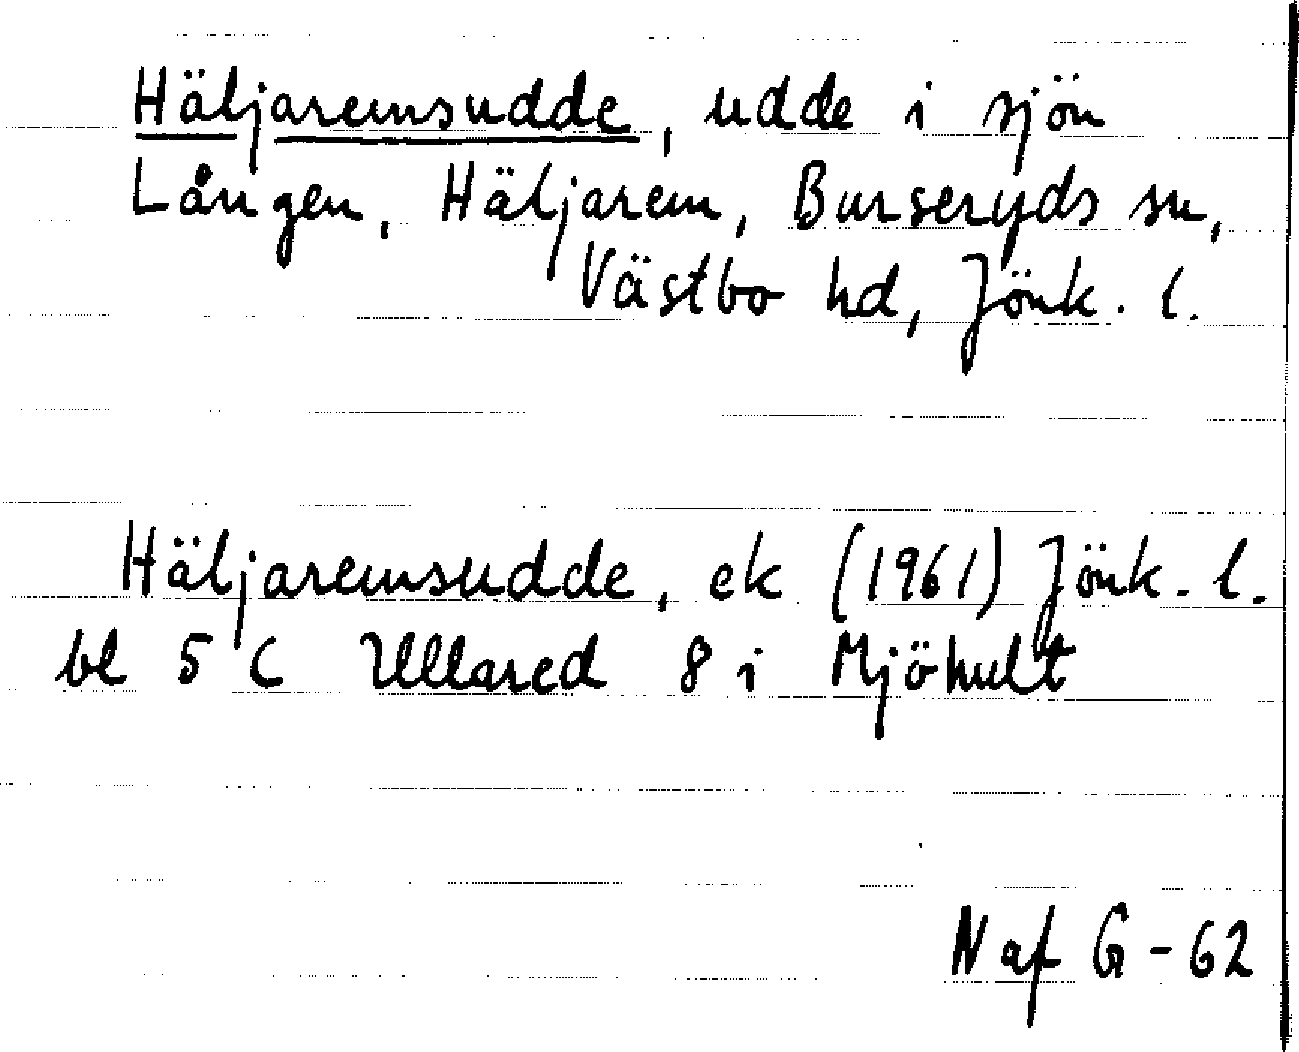 Häljaremsudde, udde i sjön
Lången, Häljarem, Burseryds sn,
Västbo hd, Jönk. l.
Häljaremsudde, ek (1961) Jönk. l.
bl 5 C Ullared 8 i Mjöhult
N af G-62